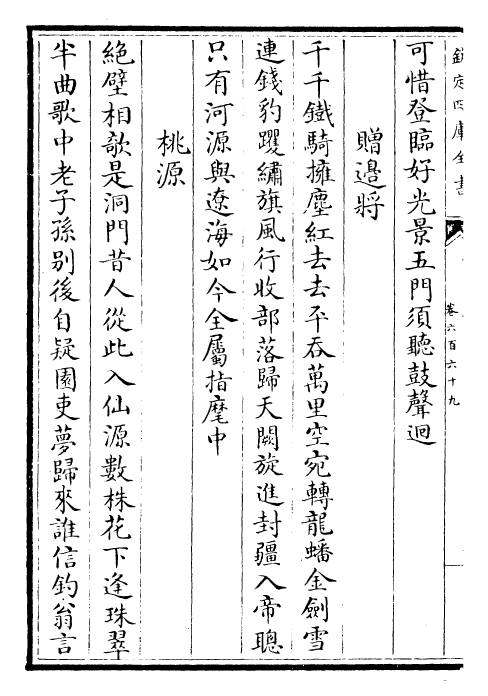 欽定四庫全書
卷六百六十九
可惜登臨好光景五門須聽鼓聲迴
贈邊將
千千鐵騎擁塵紅去去平吞萬里空宛轉龍蟠金劍雪
連錢豹躩繡旗風行收部落歸天闕旋進封疆入帝聰
只有河源與遼海如今全屬指麾中
桃源
絶壁相欹是洞門昔人從此入仙源數株花下逢珠翠
半曲歌中老子孫别後自疑園吏夢歸來誰信釣翁言